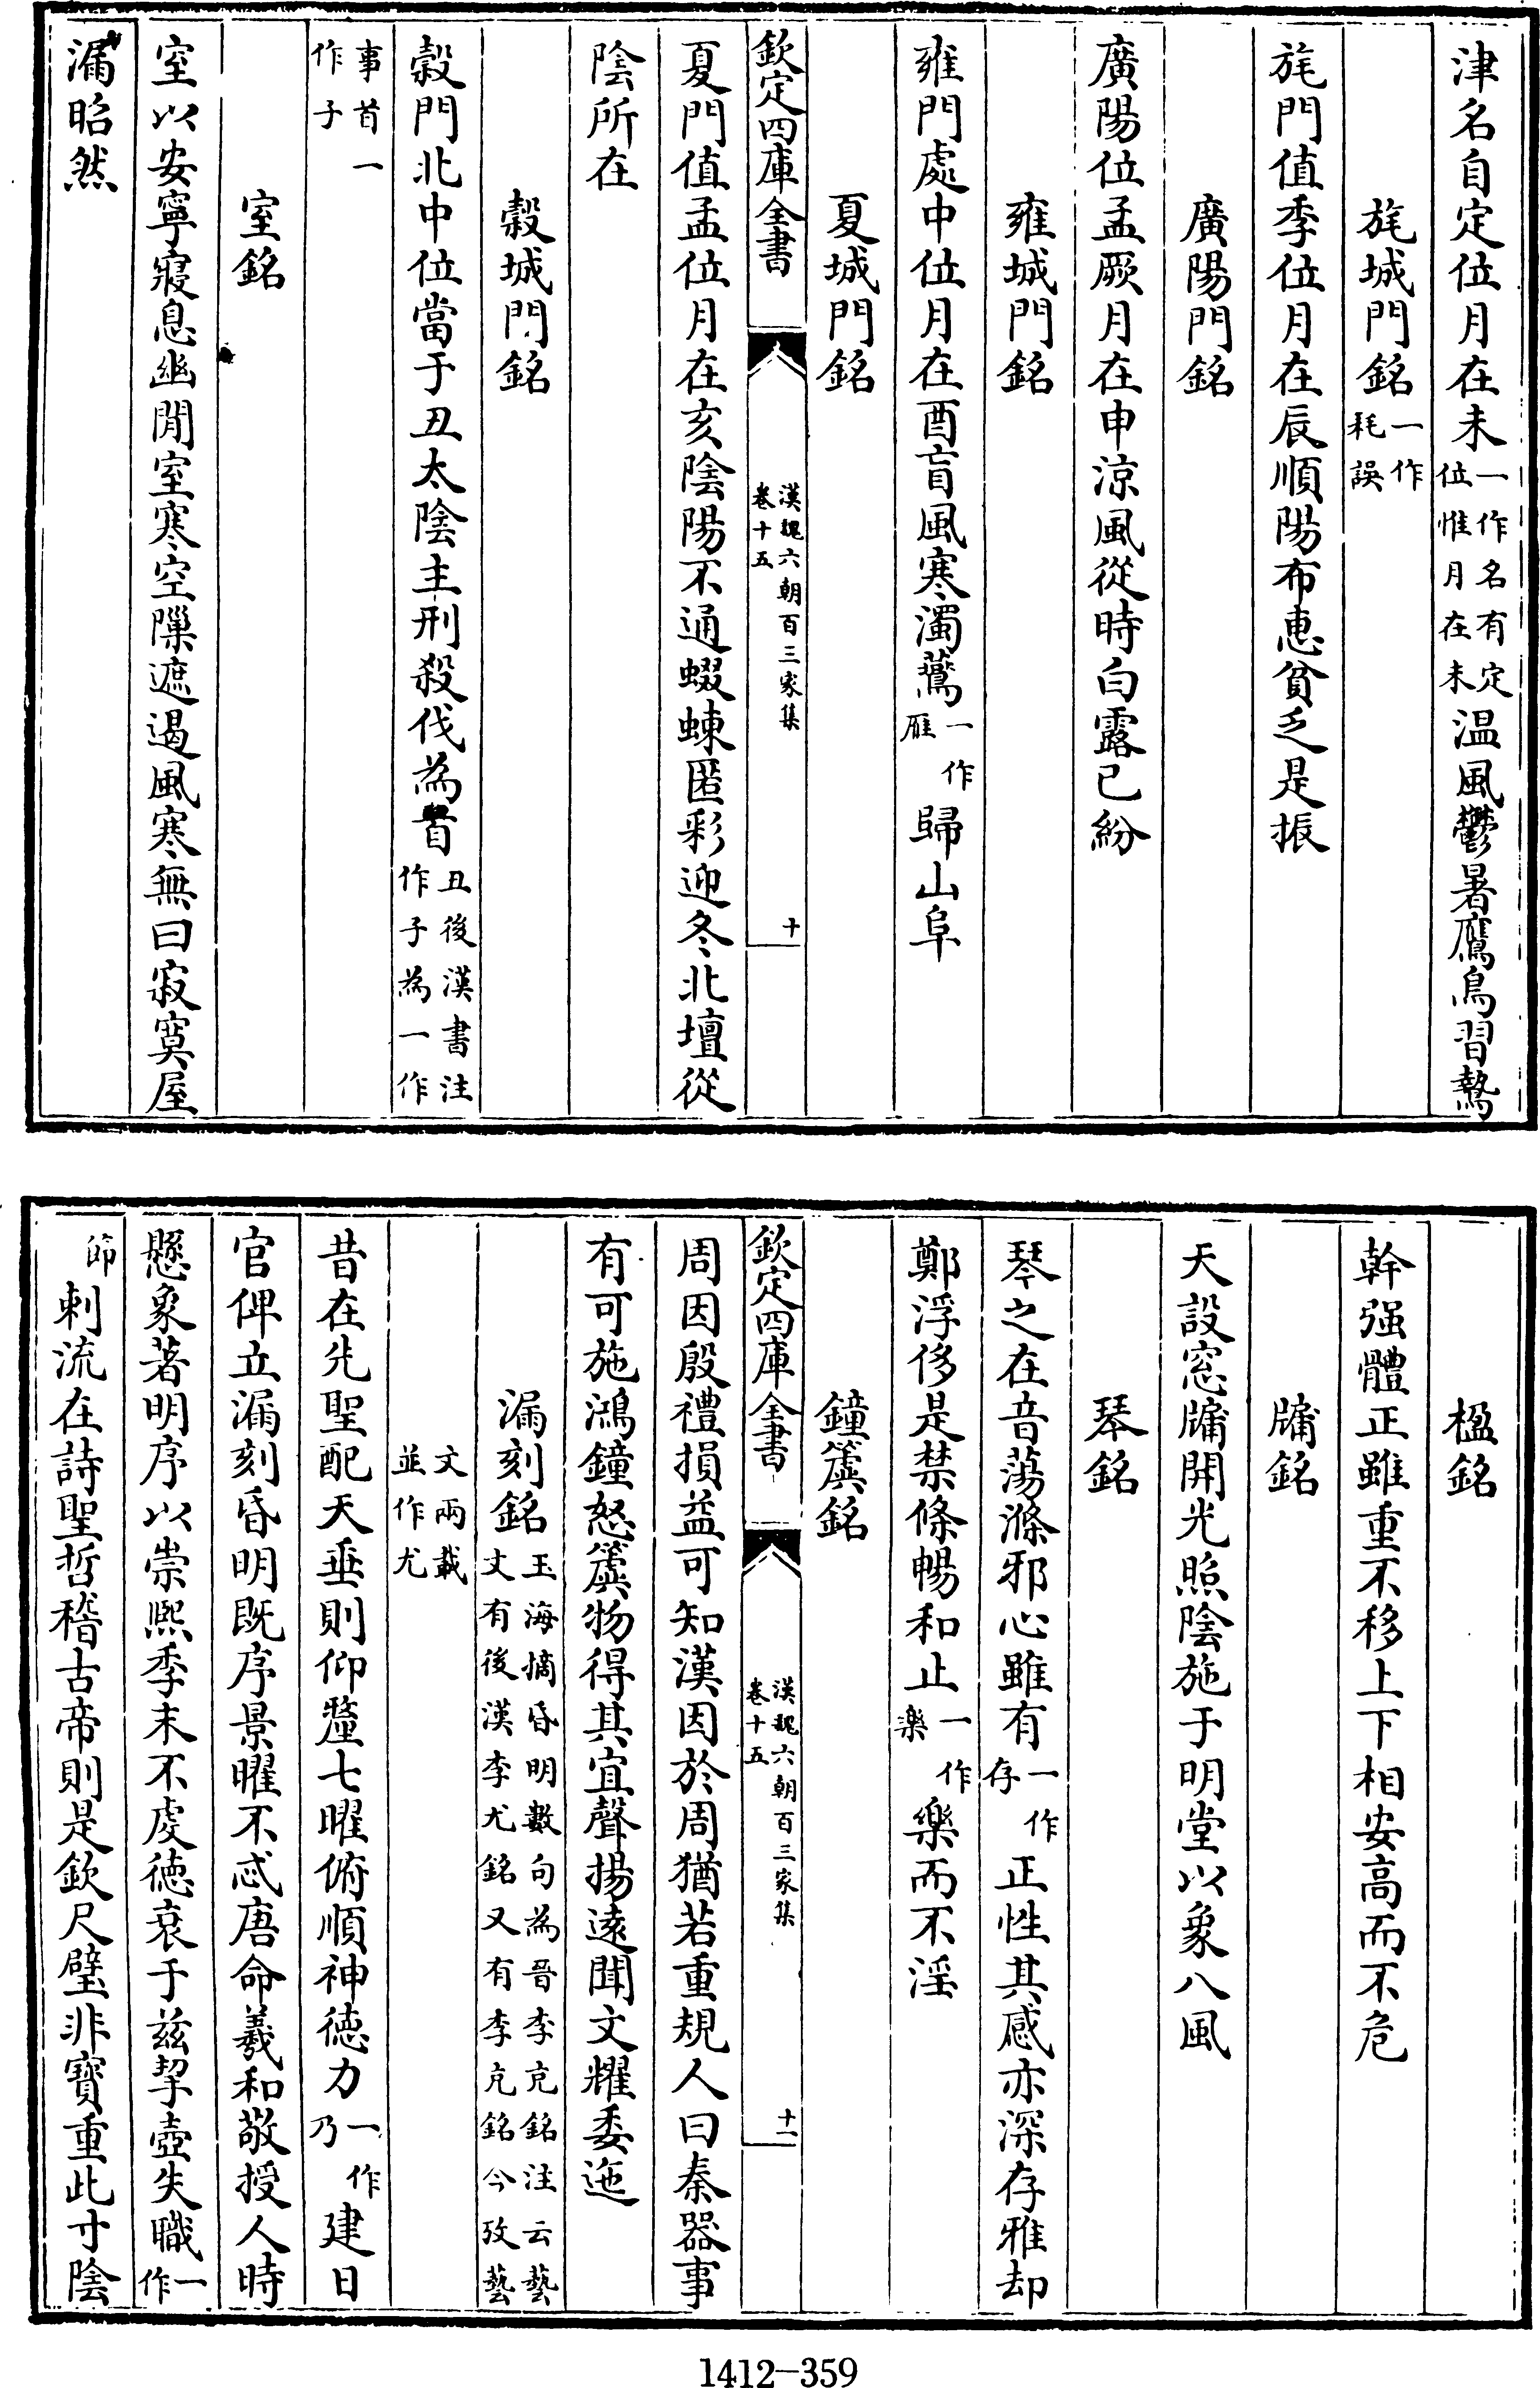 津名自定位月在未一作名有定位惟月在未温風鬱暑鷹鳥習鷙
旄城門銘一作耗誤
旄門值季位月在辰順陽布惠貧乏是振
廣陽門銘
廣陽位孟厥月在申涼風從時白露已紛
雍城門銘
雍門處中位月在酉盲風寒濁鷰一作雁歸山阜
夏城門銘
欽定四庫全書
漢魏六朝百三家集
卷十五
十
夏門值孟位月在亥陰陽不通蝃蝀匿彩迎冬北壇從
陰所在
穀城門銘
穀門北中位當于丑太陰主刑殺伐為首丑後漢書注作子為一作
事首一作子
室銘
室以安寧寢息幽閒室寒空隟遮遏風寒無曰寂寞屋
漏昭然
楹銘
幹强體正雖重不移上下相安高而不危
牗銘
天設窓牗開光照陰施于明堂以象八風
琴銘
琴之在音蕩滌邪心雖有一作存正性其感亦深存雅却
鄭浮侈是禁條暢和止一作樂樂而不淫
鐘簴銘
欽定四庫全書
漢魏六朝百三家集
卷十五
十一
周因殷禮損益可知漢因於周猶若重規人曰秦器事
有可施鴻鐘怒簴物得其宜聲揚遠聞文耀委迤
漏刻銘玉海摘昏明數句為晉李充銘注云藝文有後漢李尤銘又有李充銘今攷藝
文兩載並作尤
昔在先聖配天垂則仰釐七曜俯順神德力一作乃建日
官俾立漏刻昏明既序景曜不忒唐命羲和敬授人時
懸象著明序以崇熙季末不虔德衰于兹挈壺失職一作
節刺流在詩聖哲稽古帝則是欽尺璧非寶重此寸陰
1412-359